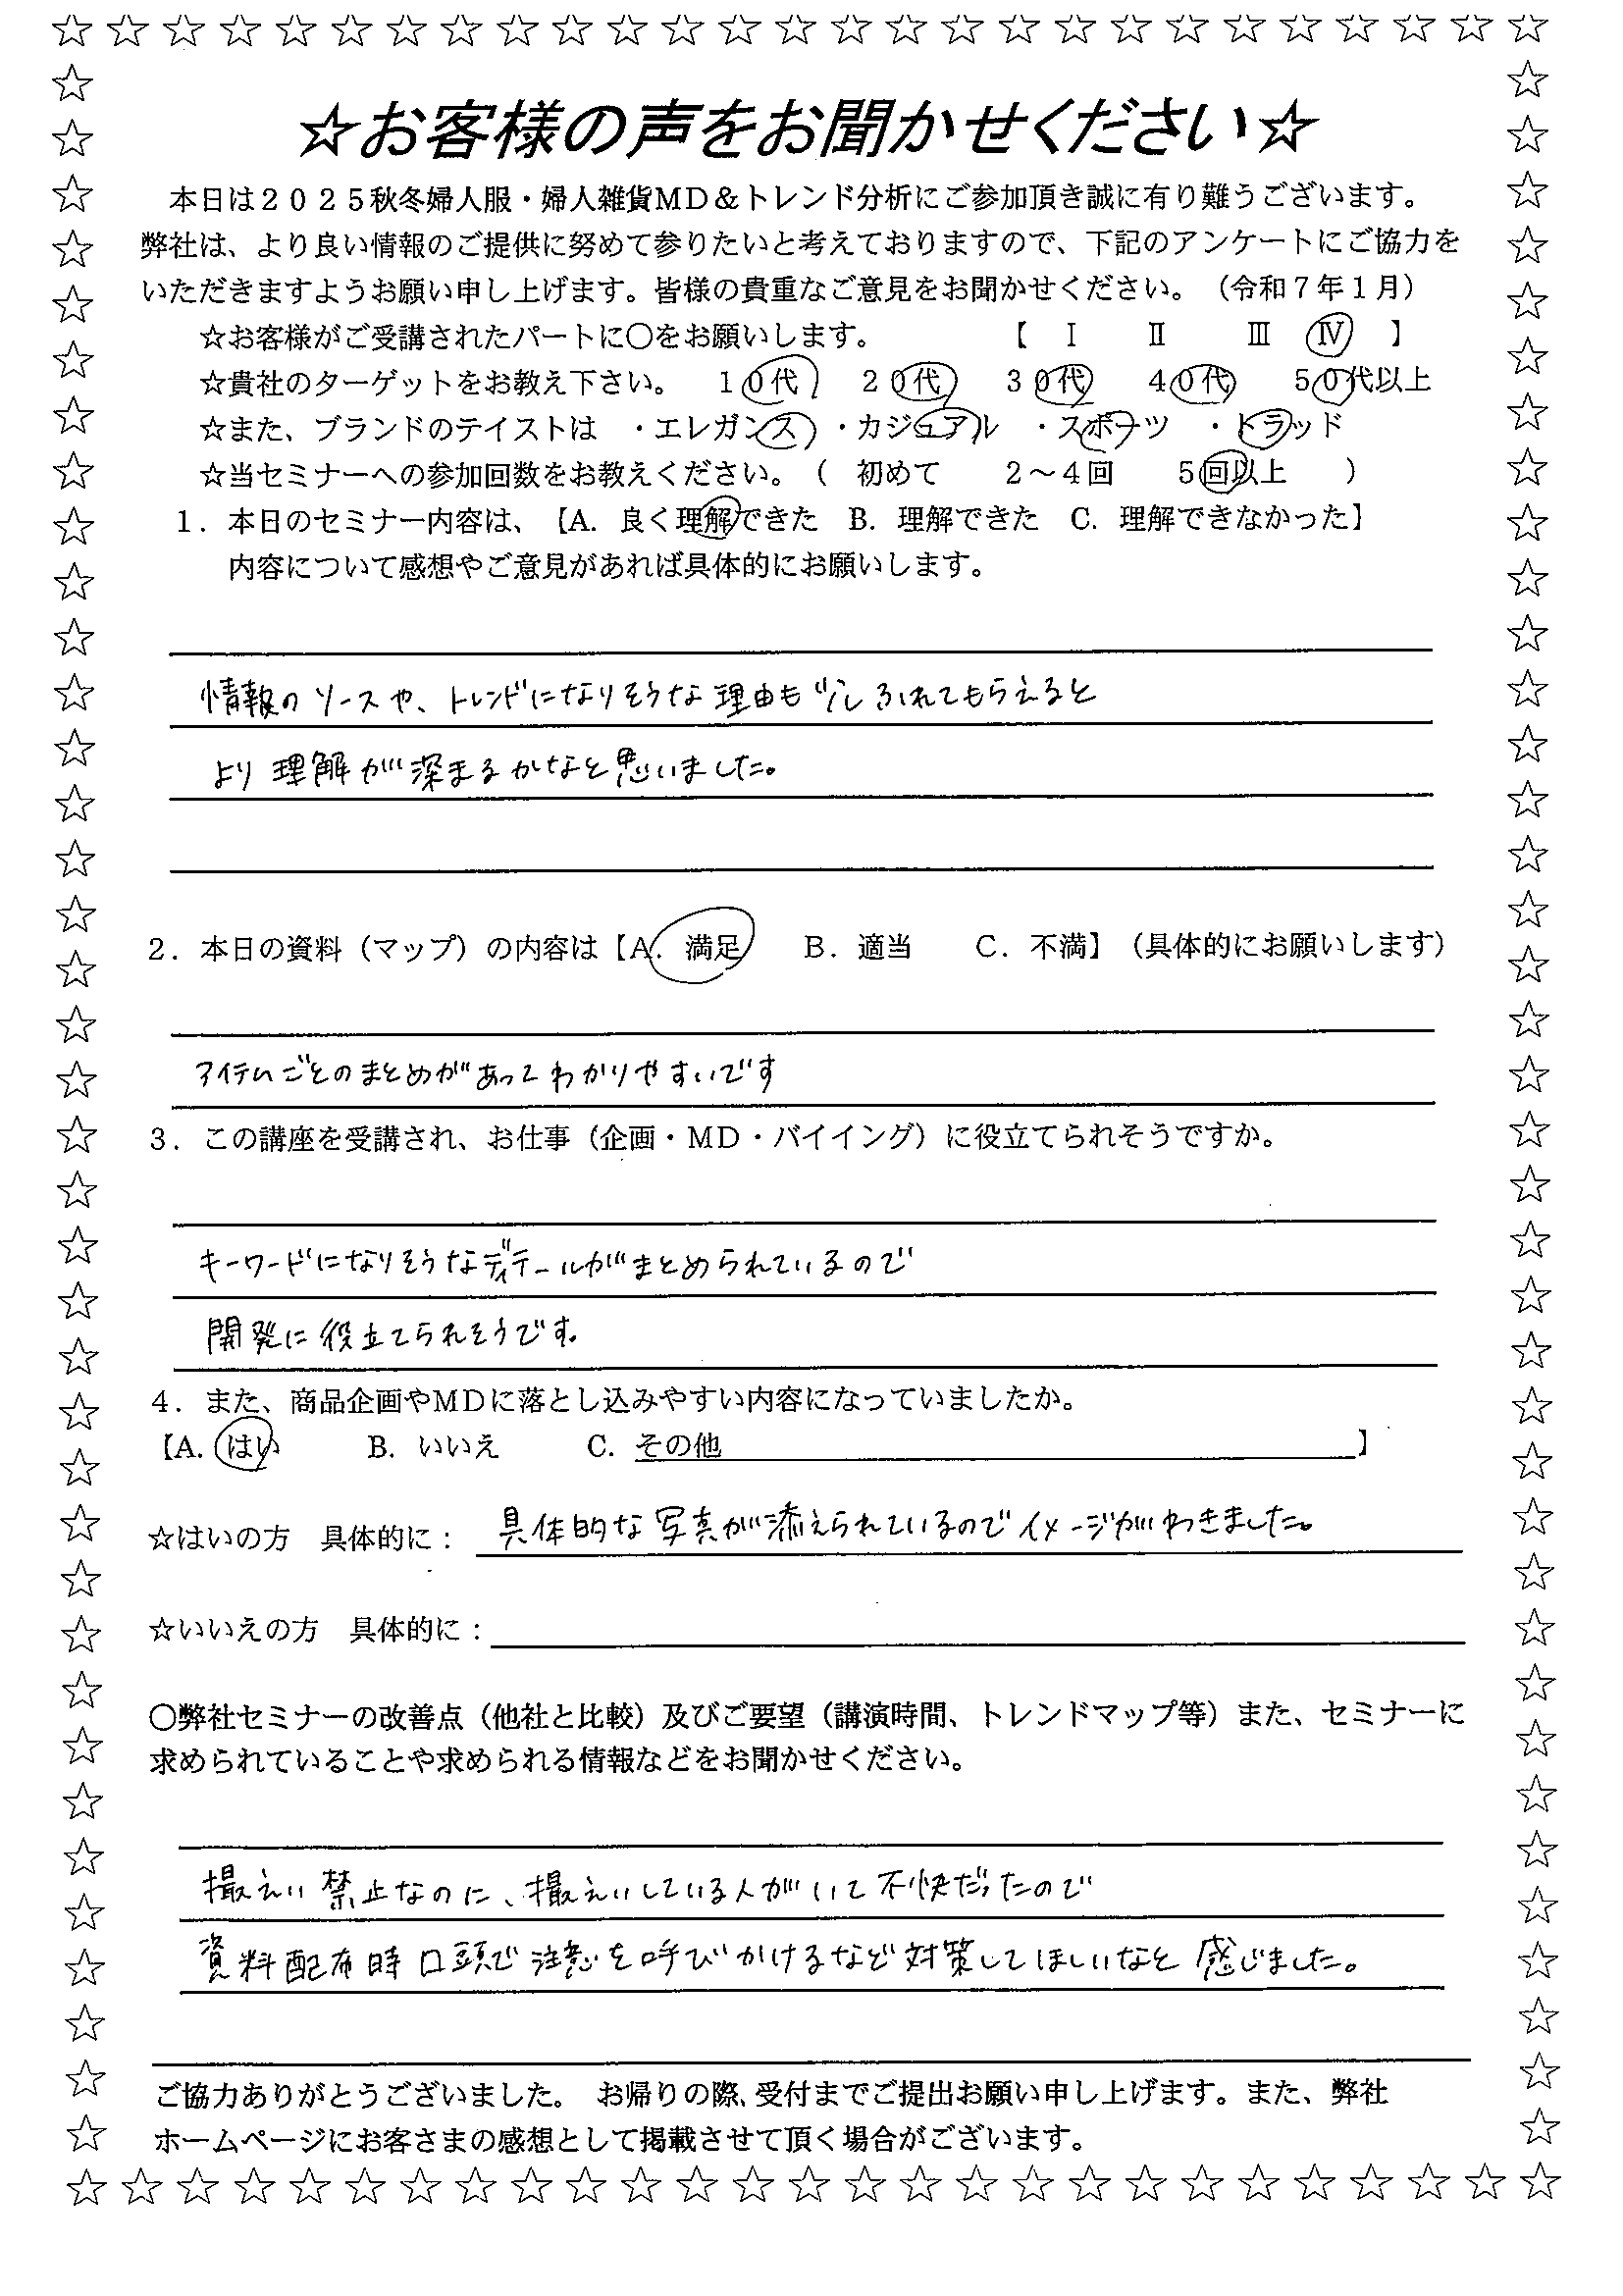 ☆お客様の声をお聞かせください☆
本日は２０２５秋冬婦人服・婦人雑貨MD＆トレンド分析にご参加頂き誠に有り難うございます。
弊社は、より良い情報のご提供に努めて参りたいと考えておりますので、下記のアンケートにご協力を
いただきますようお願い申し上げます。皆様の貴重なご意見をお聞かせください。（令和７年１月）
☆お客様がご受講されたパートに〇をお願いします。　【　Ⅰ　Ⅱ　Ⅲ　Ⅳ　】
☆貴社のターゲットをお教え下さい。　１０代　２０代　３０代　４０代　５０代以上
☆また、ブランドのテイストは　・エレガンス　・カジュアル　・スポーツ　・トラッド
☆当セミナーへの参加回数をお教えください。（　初めて　２～４回　５回以上　）
１．本日のセミナー内容は、【A. 良く理解できた　B. 理解できた　C. 理解できなかった】
内容について感想やご意見があれば具体的にお願いします。
情報のソースや、トレンドになりそうな理由も少しふれてもらえると
より理解が深まるかなと思いました。
２．本日の資料（マップ）の内容は【A．満足　B．適当　C．不満】（具体的にお願いします）
アイテムごとのまとめがあってわかりやすいです
３．この講座を受講され、お仕事（企画・MD・バイイング）に役立てられそうですか。
キーワードになりそうなディテールがまとめられているので
開発に役立てられそうです。
４．また、商品企画やMDに落とし込みやすい内容になっていましたか。
【A. はい　B. いいえ　C. その他　】
☆はいの方　具体的に：　具体的な写真が添えられているのでイメージがわきました。
☆いいえの方　具体的に：
〇弊社セミナーの改善点（他社と比較）及びご要望（講演時間、トレンドマップ等）また、セミナーに
求められていることや求められる情報などをお聞かせください。
撮えい禁止なのに、撮えいしている人がいて不快だったので
資料配布時口頭で注意を呼びかけるなど対策してほしいなと感じました。
ご協力ありがとうございました。　お帰りの際、受付までご提出お願い申し上げます。また、弊社
ホームページにお客さまの感想として掲載させて頂く場合がございます。